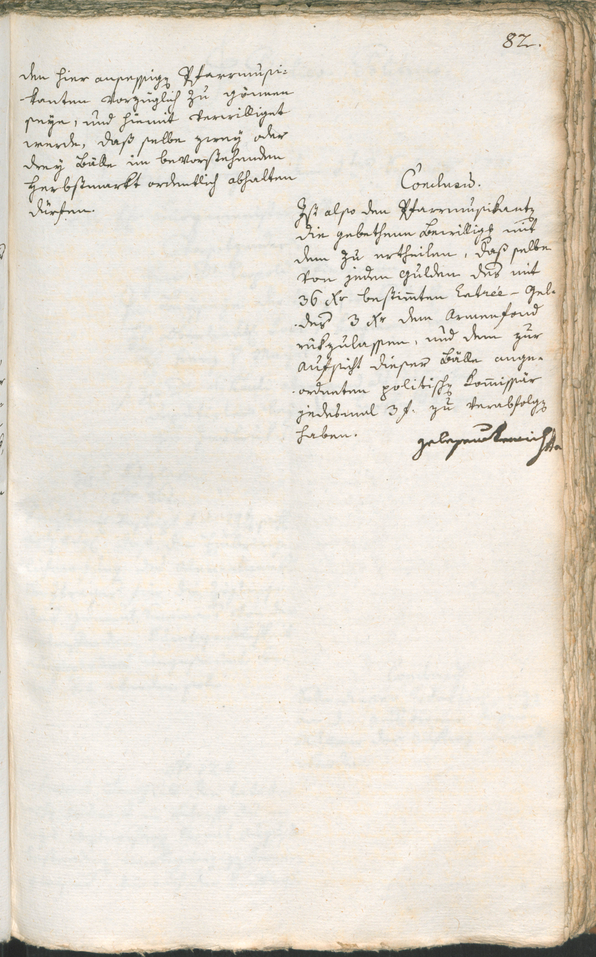 82.
den hier ansessigen Pfarrmusi-
kanten vorzüglich zu gönnen
seye, und hiemit verwilliget
werde, daß selbe zwey oder
drey Bälle im bevorstehenden
Herbstmarkt ordentlich abhalten
dürfen.
Conclusum.
Ist also den Pfarrmusikanten
die gebethene Bewilligung mit
dem zu ertheilen, daß selbe
von jeden Gulden des mit
36 Xr bestimten Entrée-Gel-
des 3 Xr dem Armenfond
rükzulassen, und dem zur
Aufsicht dieser Bälle ange-
ordneten politischen Kommissär
jedesmal 3 f. zu verabfolgen
haben.